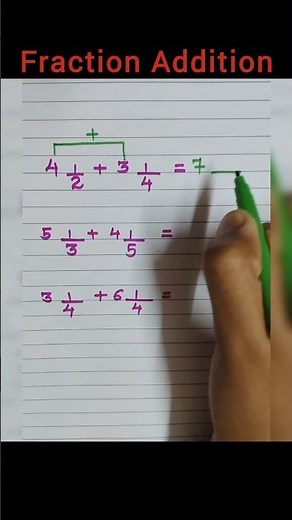 Fraction Addition
+
4 1/2 + 3 1/4 = 7
5 1/3 + 4 1/5 =
3 1/4 + 6 1/4 =